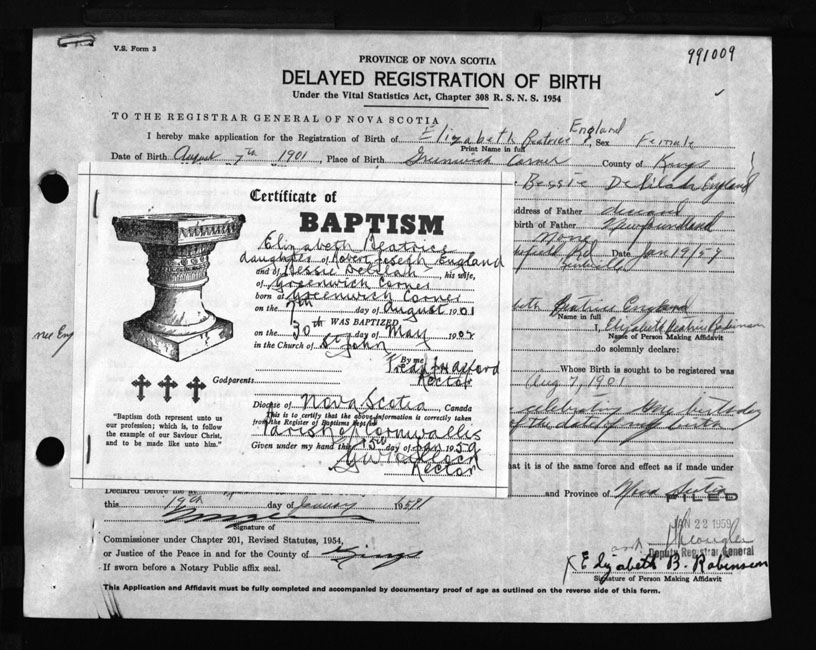 V.S. Form 3
991009
PROVINCE OF NOVA SCOTIA
DELAYED REGISTRATION OF BIRTH
Under the Vital Statistics Act, Chapter 308 R. S. N. S. 1954
TO THE REGISTRAR GENERAL OF NOVA SCOTIA
I hereby make application for the Registration of Birth of Elizabeth Beatrice England, Sex Female
Print Name in full
Date of Birth August 7th 1901, Place of Birth Greenwich Corner County of Kings
Bessie Delilah England
address of Father deceased
birth of Father Newfoundland
None
Date Jan 19/59
Beatrice England
Name in full
I, Elizabeth Beatrice Robinson
Name of Person Making Affidavit
do solemnly declare:
Whose Birth is sought to be registered was
Aug 7, 1901
celebrating my birthday
of the date of my birth
that it is of the same force and effect as if made under
and Province of Nova Scotia
FILED
JAN 22 1959
Deputy Registrar General
Elizabeth B. Robinson
Signature of Person Making Affidavit
Certificate of
BAPTISM
Elizabeth Beatrice
daughter of Robert Joseph England
and of Bessie Delilah his wife,
of Greenwich Corner
born at Greenwich Corner
on the 7th day of August 1901
WAS BAPTIZED
on the 30th day of May 1902
in the Church of St John
By me Fred J H Axford
Rector
Godparents
Diocese of Nova Scotia, Canada
This is to certify that the above information is correctly taken
from the Register of Baptisms kept for
Parish of Cornwallis
Given under my hand this 15th day of Jan 1959
Rector
"Baptism doth represent unto us
our profession; which is, to follow
the example of our Saviour Christ,
and to be made like unto him."
Declared before me
this 19th day of January 1959
Signature of
Commissioner under Chapter 201, Revised Statutes, 1954,
or Justice of the Peace in and for the County of Kings
If sworn before a Notary Public affix seal.
This Application and Affidavit must be fully completed and accompanied by documentary proof of age as outlined on the reverse side of this form.